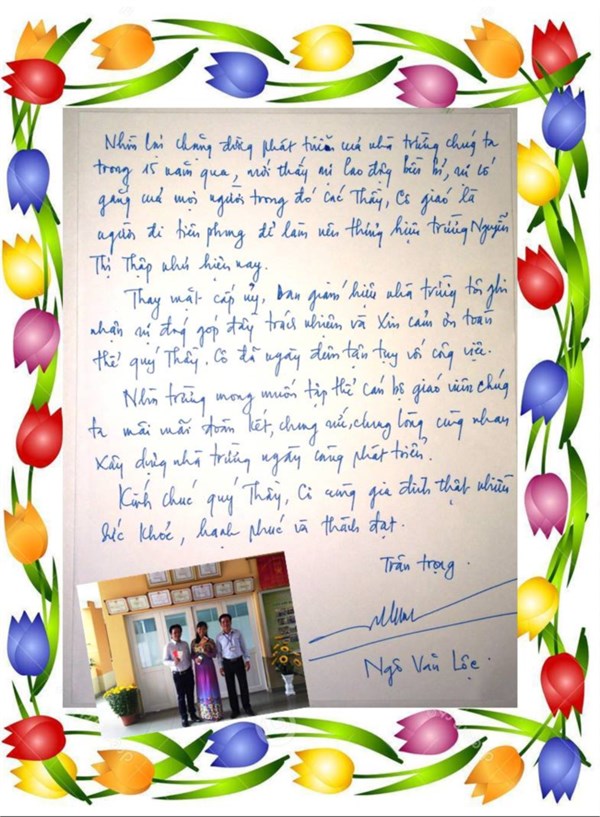 Nhìn lại chặng đường phát triển của nhà trường chúng ta
trong 15 năm qua, mới thấy sự lao động bền bỉ, sự cố
gắng của mọi người trong đó các Thầy, Cô giáo là
người đi tiên phong để làm nên thương hiệu trường Nguyễn
Thị Thập như hiện nay.
Thay mặt cấp ủy, ban giám hiệu nhà trường tôi ghi
nhận sự đóng góp đầy trách nhiệm và xin cảm ơn toàn
thể quý Thầy, Cô đã ngày đêm tận tụy với công việc.
Nhà trường mong muốn tập thể cán bộ giáo viên chúng
ta mãi mãi đoàn kết, chung sức, chung lòng cùng nhau
xây dựng nhà trường ngày càng phát triển.
Kính chúc quý Thầy, Cô cùng gia đình thật nhiều
sức khỏe, hạnh phúc và thành đạt.
Trân trọng.
Ngô Văn Lộc.